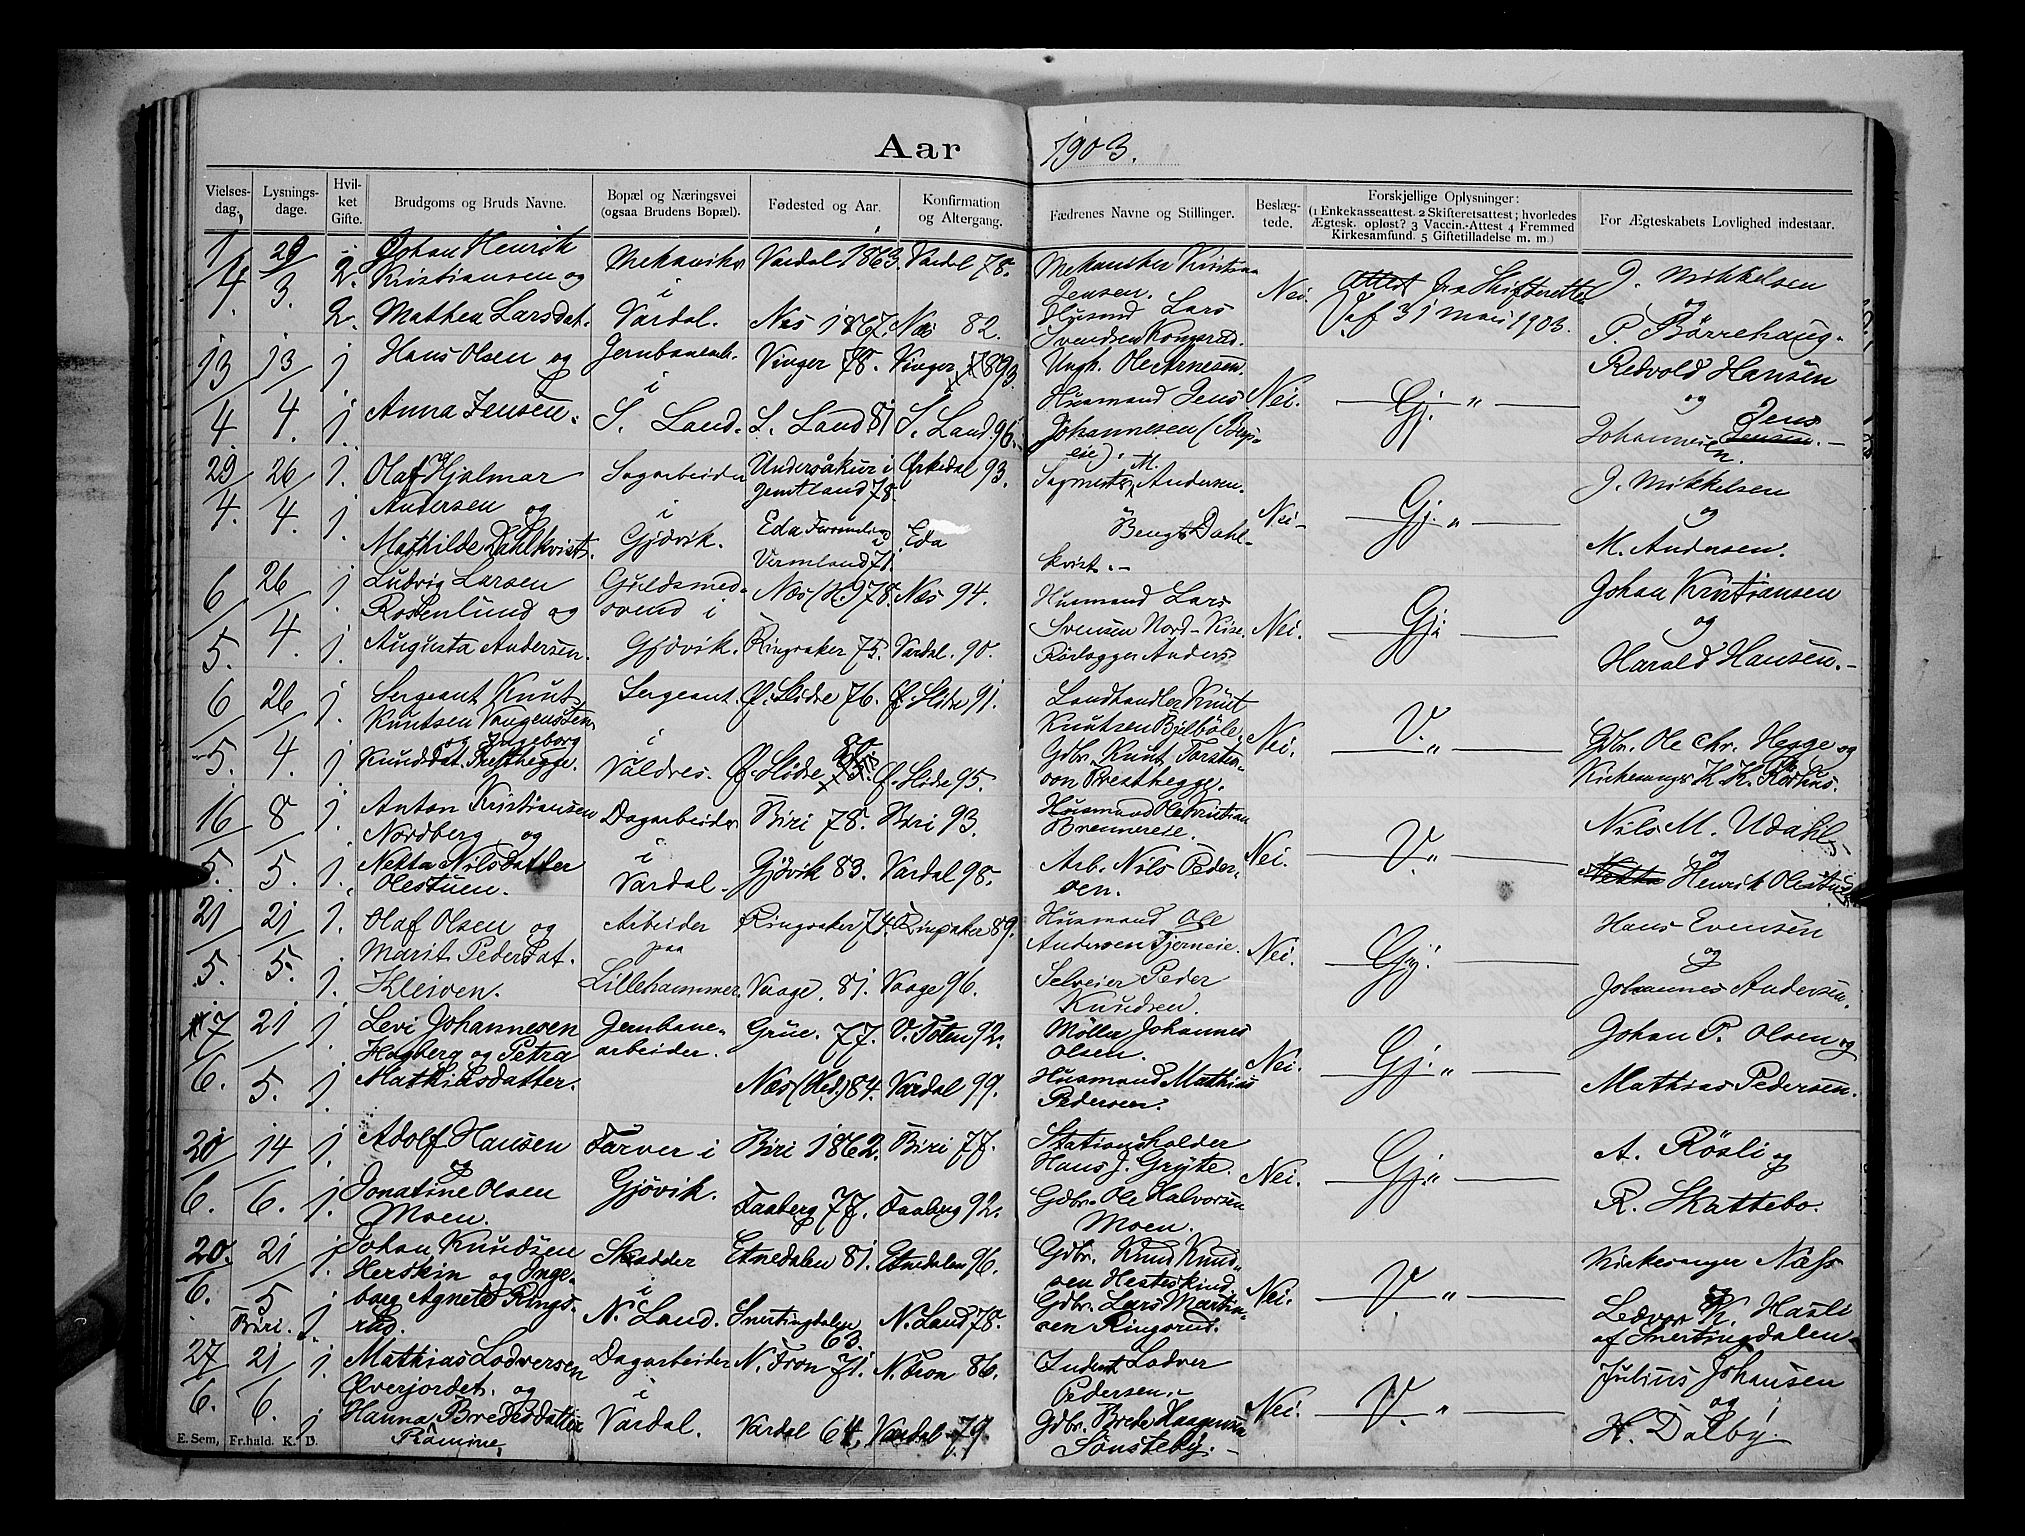 Aar 1903.
Vielses-dag. Lysnings-dage. Hvil-ket Gifte. Brudgoms og Bruds Navne. Bopæl og Næringsvei (ogsaa Brudens Bopæl). Fødested og Aar. Konfirmation og Altergang. Fædrenes Navne og Stillinger. Beslæg-tede. Forskjellige Oplysninger: (1 Enkekasseattest. 2 Skifteretsattest; hvorledes Ægtesk. opløst? 3 Vaccin.-Attest 4 Fremmed Kirkesamfund. 5 Giftetilladelse m. m.) For Ægteskabets Lovlighed indestaar.
1/4. 29/3. 2. Johan Henrik Mekaniker Vardal 1863. Vardal 78. Mekaniker Kristian Nei. Attest fra Skifteretten J. Mikkelsen
Kristiansen og i Jensen. af 31 mars 1903. og
2. Mathea Larsdat. Vardal. Næs 1867. Næs 82. Husmd Lars P. Børrehaug.
Svendsen Kongsrud.
13/4 13/4. 1 Hans Olsen og Jernbanearb. Vinger 78. Vinger 93. Ungk. Ole Arnesen. Nei. Gj. " Redvold Hansen
i Husmand Jens og Jens
1. Anna Jensen. S. Land. S. Land 81 S. Land 96. Johannesen Johannesen Jensen.
29/4. 26/4. 1. Olaf Hjalmar Sagarbeider Undersåker i Ørkedal 93. Sagmester M. Andersen. Nei Gj. " J. Mikkelsen
Andersen og i Jemtland 78. og
1. Mathilde Dahlkvist. Gjøvik. Eda Eda Bengt Dahl- M. Andersen.
Vermland 71. kvist.
6/5. 26/4. 1 Ludvig Larsen Guldsmed- Næs (H.) 78. Næs 94. Husmand Lars Nei. Gj. Johan Kristiansen
Rosenlund og svend i Svensen Nord-Kise. og
1. Augusta Andersen. Gjøvik. Ringsaker 75. Vardal. 90. Rørlægger Anders Harald Hansen.
6/5. 26/4. 1. Sergeant Knut Sergeant Ø. Slidre 76. Ø. Slidre 91. Landhandler Knut Nei. V. " Gdbr. Ole Chr. Hegge og
Knutsen Vangensten i Knutsen Kirkesanger K. K.
og Ingeborg Gdbr. Knut Torstein-
1 Knudsdat. Presthegge. Valdres. Ø. Slidre 80 Ø. Slidre 95. son Presthegge.
16/5. 8/5. 1. Anton Kristiansen Dagarbeider Biri 78. Biri 93. Husmand Ole Kristian Nei. V. " Nils M. Udahl
Nordberg og i Brennereie. og
1. Nekta Nilsdatter Vardal. Gjøvik 83. Vardal 98. Arb. Nils Peder- Nekta Henrik Olestuen
Olestuen. sen.
21/5. 21/5. 1. Olaf Olsen og Arbeider Ringsaker 74. Ringsaker 89. Husmand Ole Nei. Gj. Hans Evensen
Marit Pedersdat. paa Andersen Tjerneie. og
1. Kleiven. Lillehammer. Vaage. 81. Vaage 96. Selveier Peder Johannes Andersen.
Knudsen.
7/6. 21/5. 1 Levi Johannesen Jernbane- Grue. 77. V. Toten 92. Møller Johannes Nei. Gj. " Johan P. Olsen og
Hagberg og Petra arbeider. Olsen.
1 Mathiasdatter. Næs (Hed.) 84. Vardal 99. Husmand Mathias Mathias Pedersen.
Pedersen.
20/6. 14/6. 1. Adolf Hansen Farver i Biri 1862. Biri 77. Stationsholder Nei. Gj. " A. Røsli og
og Gjøvik. Hans J. Gryte.
1. Jonatine Olsen Faaberg 77. Faaberg 92. Gdbr. Ole Halvorsen R. Skattebo.
Moen. Moen.
20./6. 21/5 Biri. 1. Johan Knudsen Skrædder Etnedalen 81. Etnedalen 96. Gdbr. Knud Knud- Nei. V. " Kirkesanger Næss
Herskin og Inge- i sen Hesteskind. og
1. borg Agnete Rings- N. Land. Snertingdalen N. Land 78. Gdbr. Lars Martin- K. Hasli
rud. 63. sen Ringsrud. af Snertingdalen.
27/6. 21/6. 1. Mathias Lodversen Dagarbeider N. Fron 71. N. Fron 86. Inderst Lodver Nei. V. " Julius Johansen
Øverjordet. og i Pedersen. og
1 Hanna Bredesdatter Vardal. Vardal 64. Vardal 79. Gdbr. Brede Haagensen H. Dalby.
Sønsteby.
E. Sem, Fr.hald. K. D.